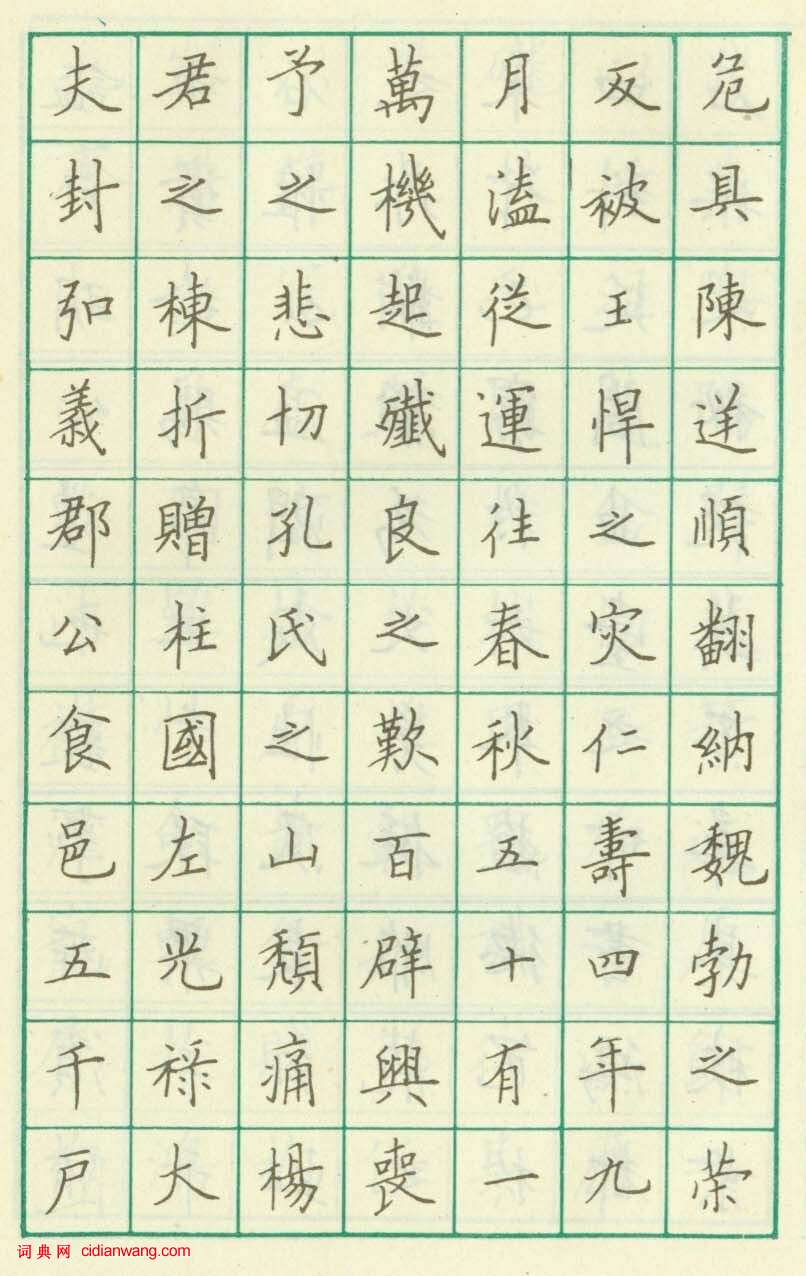 危具陳逆順翻納魏勃之荣
反被王悍之灾仁壽四年九
月溘從運往春秋五十有一
萬機起殲良之歎百辟興喪
予之悲切孔氏之山頹痛楊
君之棟折贈柱國左光祿大
夫封弘義郡公食邑五千戸
词典网 cidianwang.com